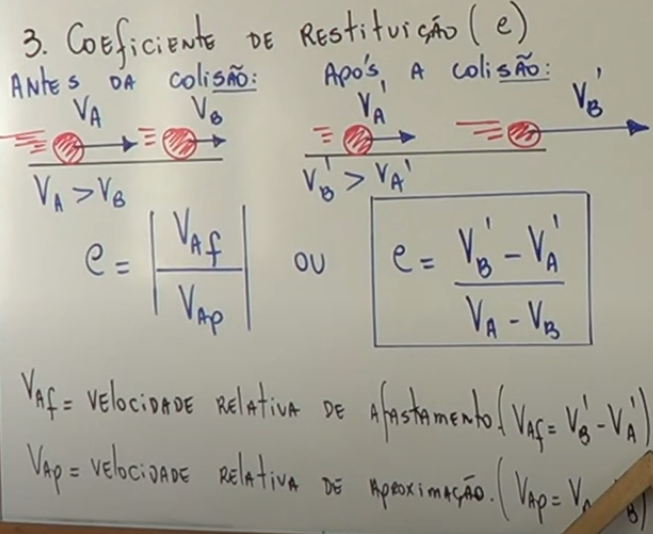 3. COEFICIENTE DE RESTITUIÇÃO (e)
ANTES DA COLISÃO: APÓS A COLISÃO:
VA VB VA' VB'
VA > VB VB' > VA'
e = |VAf / VAp| OU e = (VB' - VA') / (VA - VB)
VAf = VELOCIDADE RELATIVA DE AFASTAMENTO. (VAf = VB' - VA')
VAp = VELOCIDADE RELATIVA DE APROXIMAÇÃO. (VAp = V